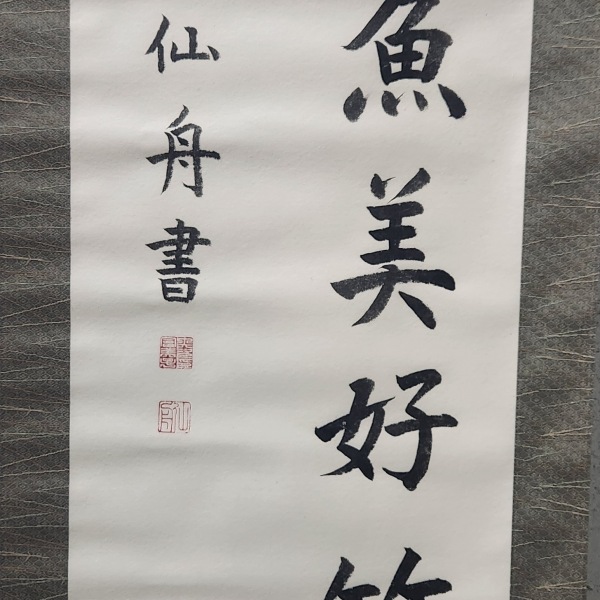 魚美好
仙舟書